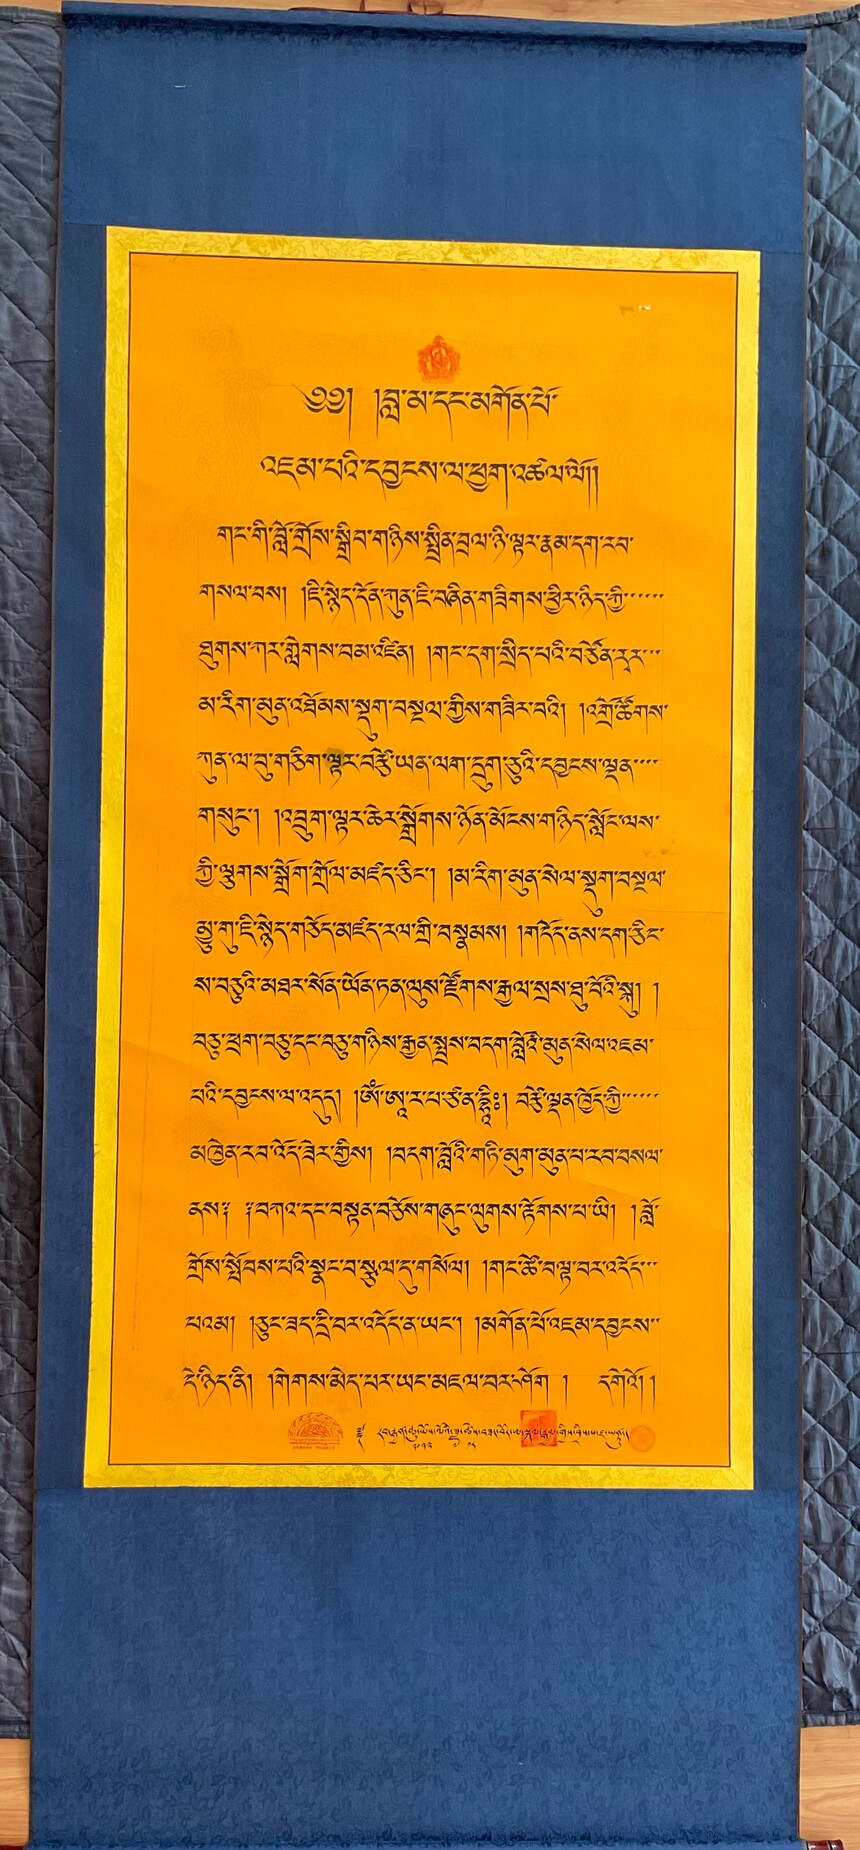 ༄༅། །བླ་མ་དང་མགོན་པོ་
འཇམ་པའི་དབྱངས་ལ་ཕྱག་འཚལ་ལོ། །
གང་གི་བློ་གྲོས་སྒྲིབ་གཉིས་སྤྲིན་བྲལ་ཉི་ལྟར་རྣམ་དག་རབ་
གསལ་བས། །ཇི་སྙེད་དོན་ཀུན་ཇི་བཞིན་གཟིགས་ཕྱིར་ཉིད་ཀྱི་
ཐུགས་ཀར་གླེགས་བམ་འཛིན། །གང་དག་སྲིད་པའི་བཙོན་རར་
མ་རིག་མུན་འཐོམས་སྡུག་བསྔལ་གྱིས་གཟིར་བའི། །འགྲོ་ཚོགས་
ཀུན་ལ་བུ་གཅིག་ལྟར་བརྩེ་ཡན་ལག་དྲུག་ཅུའི་དབྱངས་ལྡན་
གསུང༌། །འབྲུག་ལྟར་ཆེར་སྒྲོགས་ཉོན་མོངས་གཉིད་སློང་ལས་
ཀྱི་ལྕགས་སྒྲོག་གྲོལ་མཛད་ཅིང༌། །མ་རིག་མུན་སེལ་སྡུག་བསྔལ་
མྱུ་གུ་ཇི་སྙེད་གཅོད་མཛད་རལ་གྲི་བསྣམས། །གདོད་ནས་དག་ཅིང་
ས་བཅུའི་མཐར་སོན་ཡོན་ཏན་ལུས་རྫོགས་རྒྱལ་སྲས་ཐུ་བོའི་སྐུ། །
བཅུ་ཕྲག་བཅུ་དང་བཅུ་གཉིས་རྒྱན་སྤྲས་བདག་བློའི་མུན་སེལ་འཇམ་
པའི་དབྱངས་ལ་འདུད། །ཨོཾ་ཨ་ར་པ་ཙ་ན་དྷཱིཿ། བརྩེ་ལྡན་ཁྱོད་ཀྱི་
མཁྱེན་རབ་འོད་ཟེར་གྱིས། །བདག་བློའི་གཏི་མུག་མུན་པ་རབ་བསལ་
ནས༑ ༑བཀའ་དང་བསྟན་བཅོས་གཞུང་ལུགས་རྟོགས་པ་ཡི། །བློ་
གྲོས་སྤོབས་པའི་སྣང་བ་སྩལ་དུ་གསོལ། །གང་ཚེ་བལྟ་བར་འདོད་
པའམ། །ཅུང་ཟད་དྲི་བར་འདོད་ན་ཡང༌། །མགོན་པོ་འཇམ་དབྱངས་
དེ་ཉིད་ནི། །གེགས་མེད་པར་ཡང་མཇལ་བར་ཤོག །དགེའོ། །